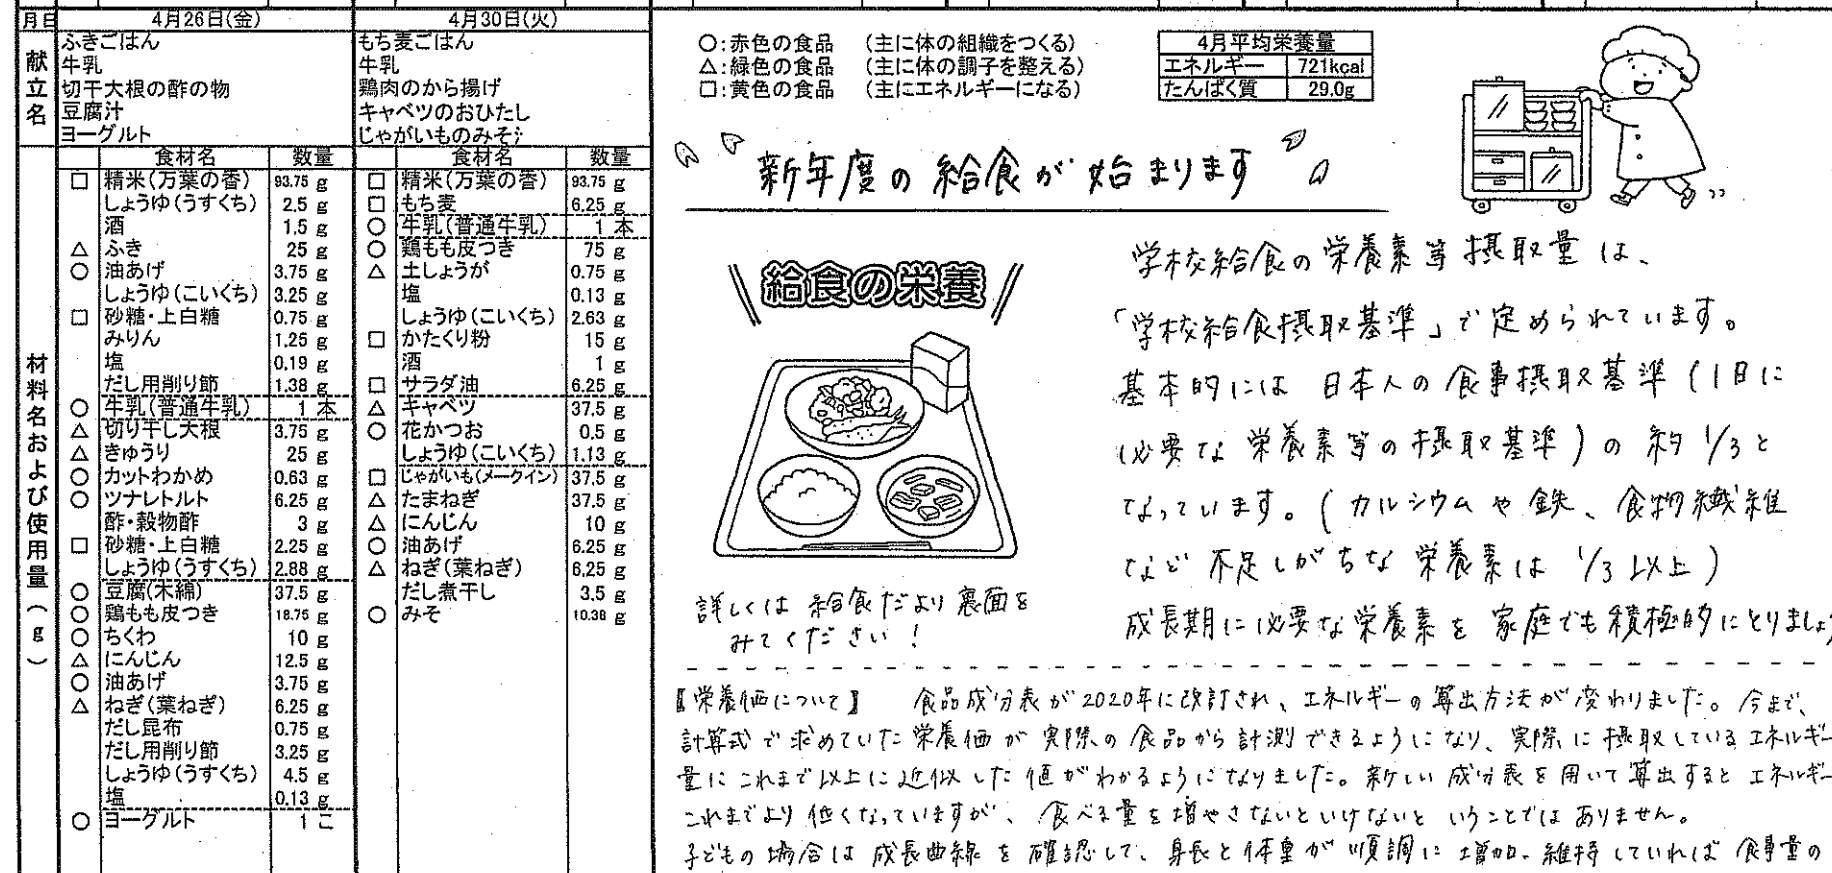 月日 4月26日(金) 4月30日(火)
献立名
ふきごはん
牛乳
切干大根の酢の物
豆腐汁
ヨーグルト
もち麦ごはん
牛乳
鶏肉のから揚げ
キャベツのおひたし
じゃがいものみそ
材料名および使用量(g)
食材名 数量
□ 精米(万葉の香) 93.75 g
しょうゆ(うすくち) 2.5 g
酒 1.5 g
△ ふき 25 g
○ 油あげ 3.75 g
しょうゆ(こいくち) 3.25 g
□ 砂糖・上白糖 0.75 g
みりん 1.25 g
塩 0.19 g
だし用削り節 1.38 g
○ 牛乳(普通牛乳) 1 本
△ 切り干し大根 3.75 g
△ きゅうり 25 g
○ カットわかめ 0.63 g
○ ツナレトルト 6.25 g
酢・穀物酢 3 g
□ 砂糖・上白糖 2.25 g
しょうゆ(うすくち) 2.88 g
○ 豆腐(木綿) 37.5 g
○ 鶏もも皮つき 18.75 g
○ ちくわ 10 g
△ にんじん 12.5 g
○ 油あげ 3.75 g
△ ねぎ(葉ねぎ) 6.25 g
だし昆布 0.75 g
だし用削り節 3.25 g
しょうゆ(うすくち) 4.5 g
塩 0.13 g
○ ヨーグルト 1 こ
食材名 数量
□ 精米(万葉の香) 93.75 g
□ もち麦 6.25 g
○ 牛乳(普通牛乳) 1 本
○ 鶏もも皮つき 75 g
△ 土しょうが 0.75 g
塩 0.13 g
しょうゆ(こいくち) 2.63 g
□ かたくり粉 15 g
酒 1 g
□ サラダ油 6.25 g
△ キャベツ 37.5 g
○ 花かつお 0.5 g
しょうゆ(こいくち) 1.13 g
□ じゃがいも(メークイン) 37.5 g
△ たまねぎ 37.5 g
△ にんじん 10 g
○ 油あげ 6.25 g
△ ねぎ(葉ねぎ) 6.25 g
だし煮干し 3.5 g
○ みそ 10.38 g
○:赤色の食品 (主に体の組織をつくる)
△:緑色の食品 (主に体の調子を整える)
□:黄色の食品 (主にエネルギーになる)
4月平均栄養量
エネルギー 721kcal
たんぱく質 29.0g
新年度の給食が始まります
給食の栄養
詳しくは給食だより裏面を
みてください!
学校給食の栄養素等摂取量は、
「学校給食摂取基準」で定められています。
基本的には日本人の食事摂取基準(1日に
必要な栄養素等の摂取基準)の約1/3と
なっています。(カルシウムや鉄、食物繊維
など不足しがちな栄養素は1/3以上)
成長期に必要な栄養素を家庭でも積極的にとりましょ
【栄養価について】 食品成分表が2020年に改訂され、エネルギーの算出方法が変わりました。今まで、
計算式で求めていた栄養価が実際の食品から計測できるようになり、実際に摂取しているエネルギー
量にこれまで以上に近似した値がわかるようになりました。新しい成分表を用いて算出するとエネルギー
これまでより低くなっていますが、食べる量を増やさないといけないということではありません。
子どもの場合は成長曲線を確認して、身長と体重が順調に増加、維持していれば食事量の